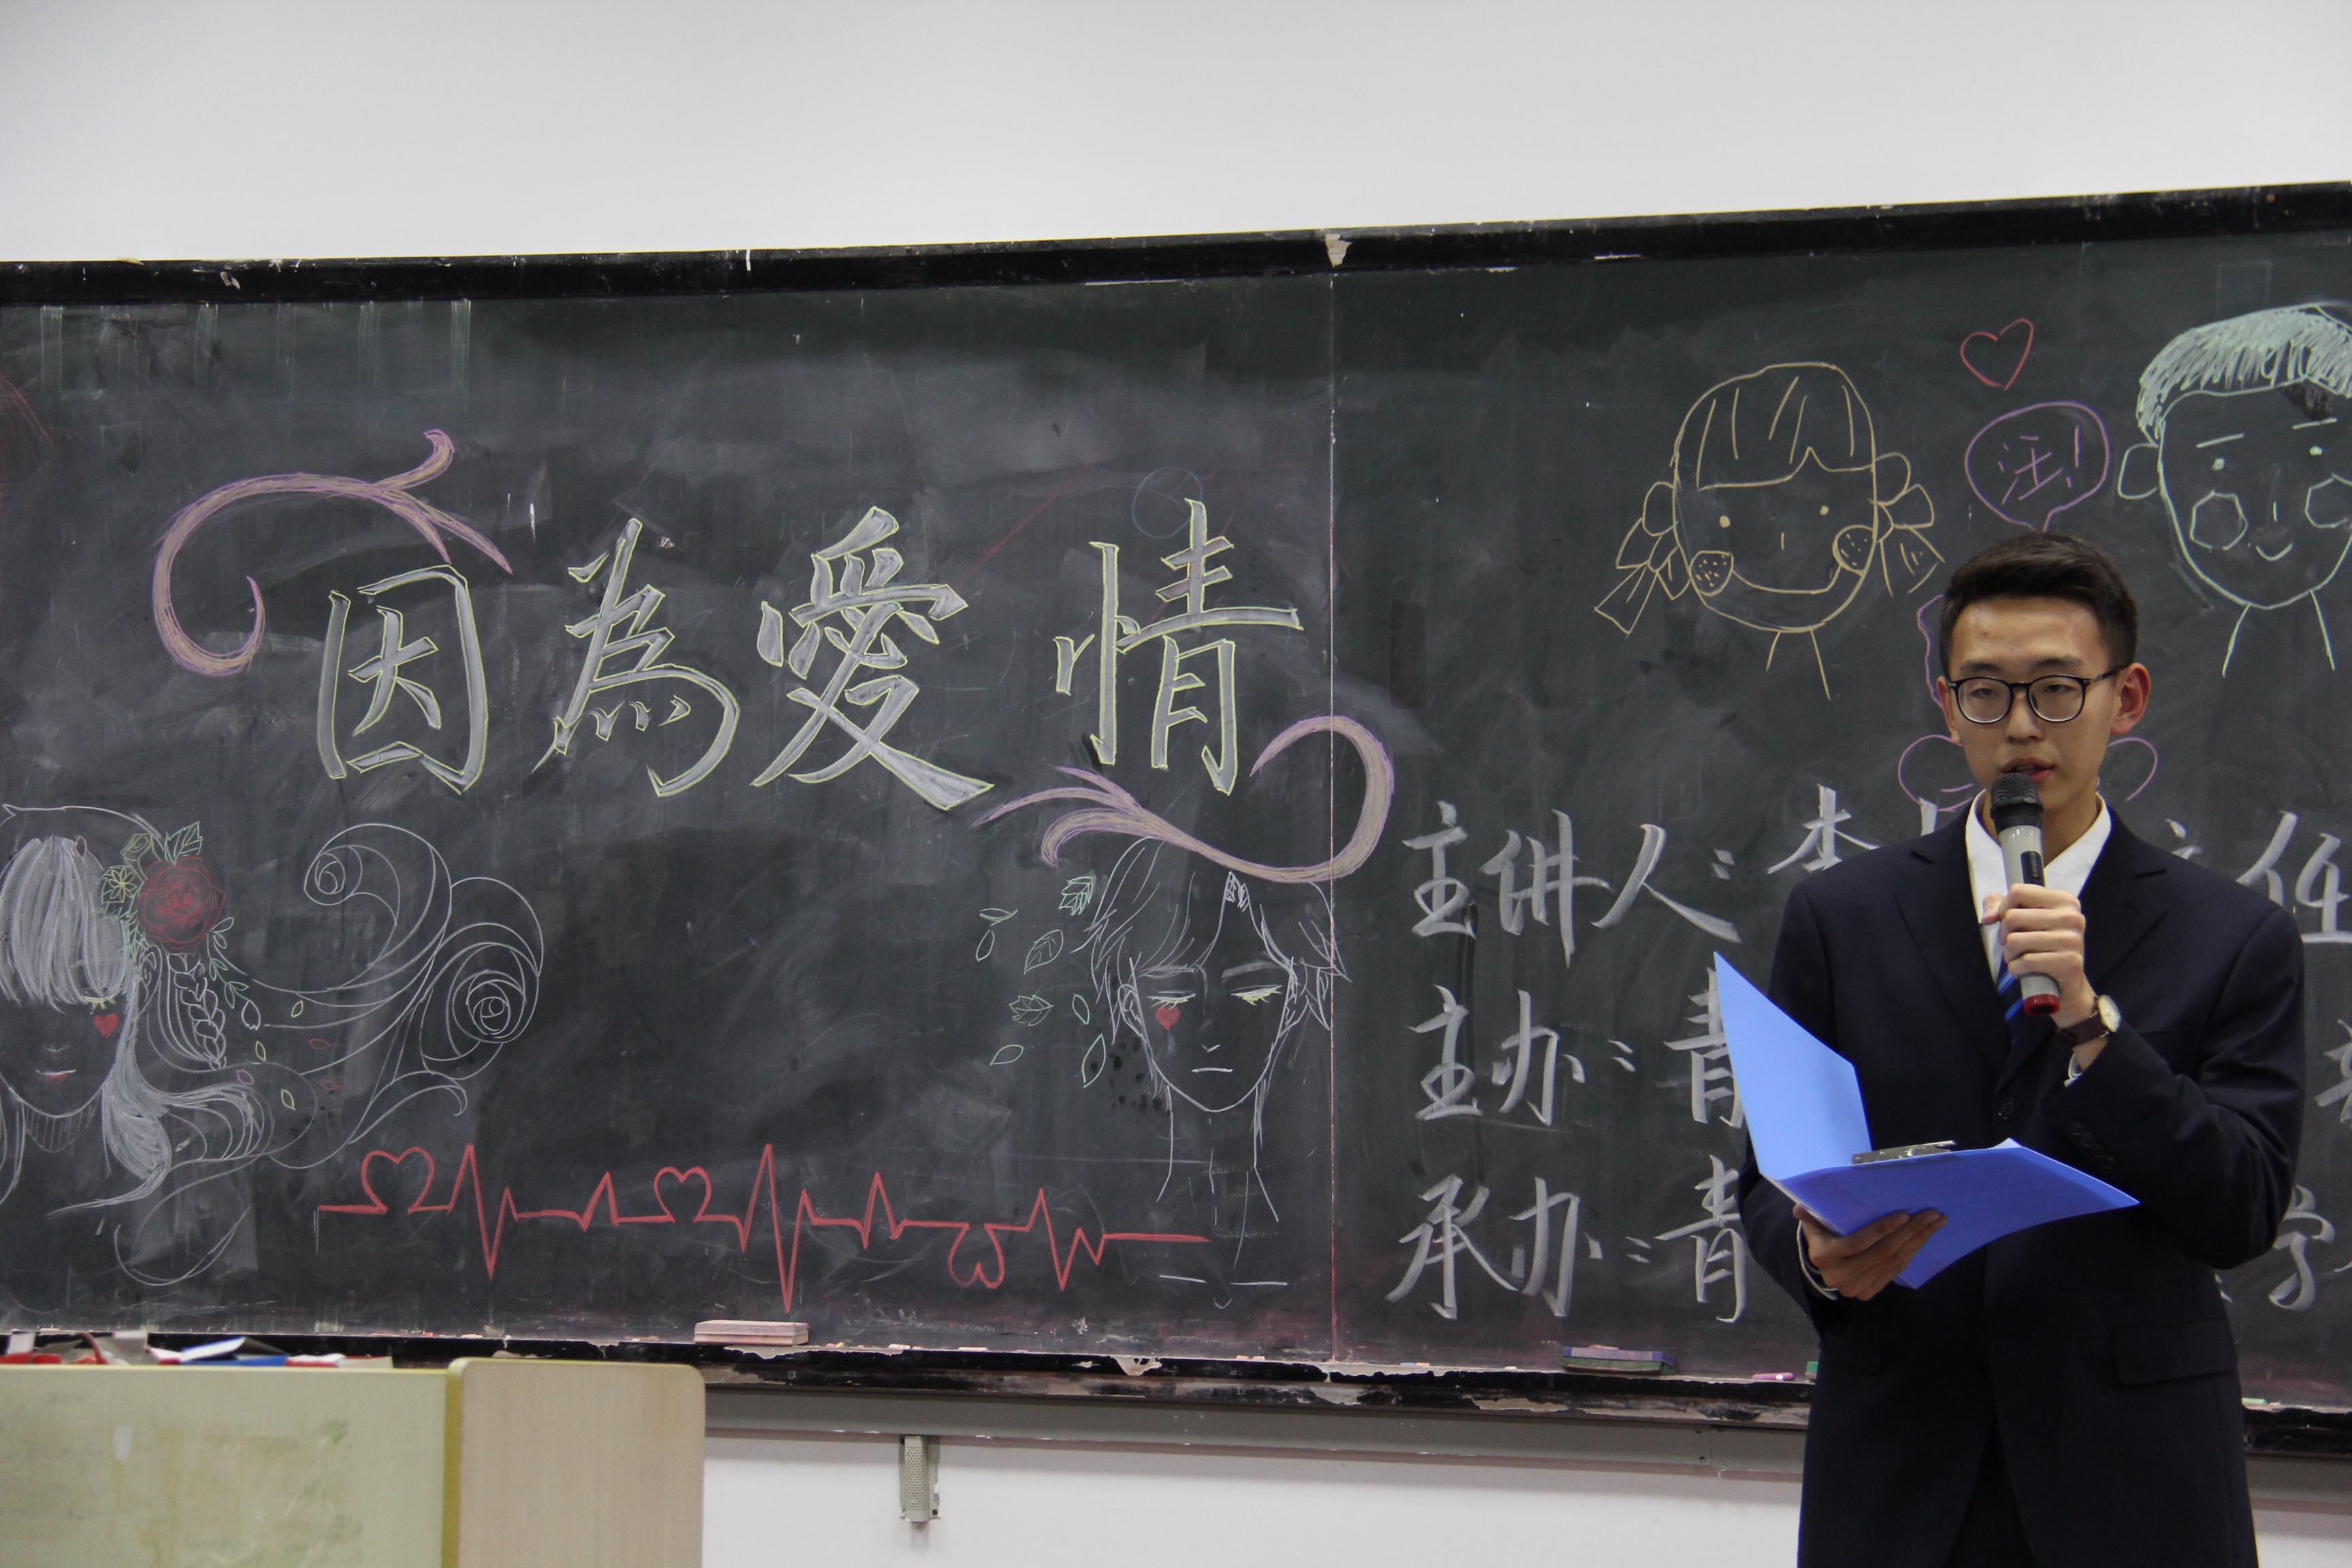 因為愛情
汪!
主讲人: 李
主任
主办: 青
承办: 青
学